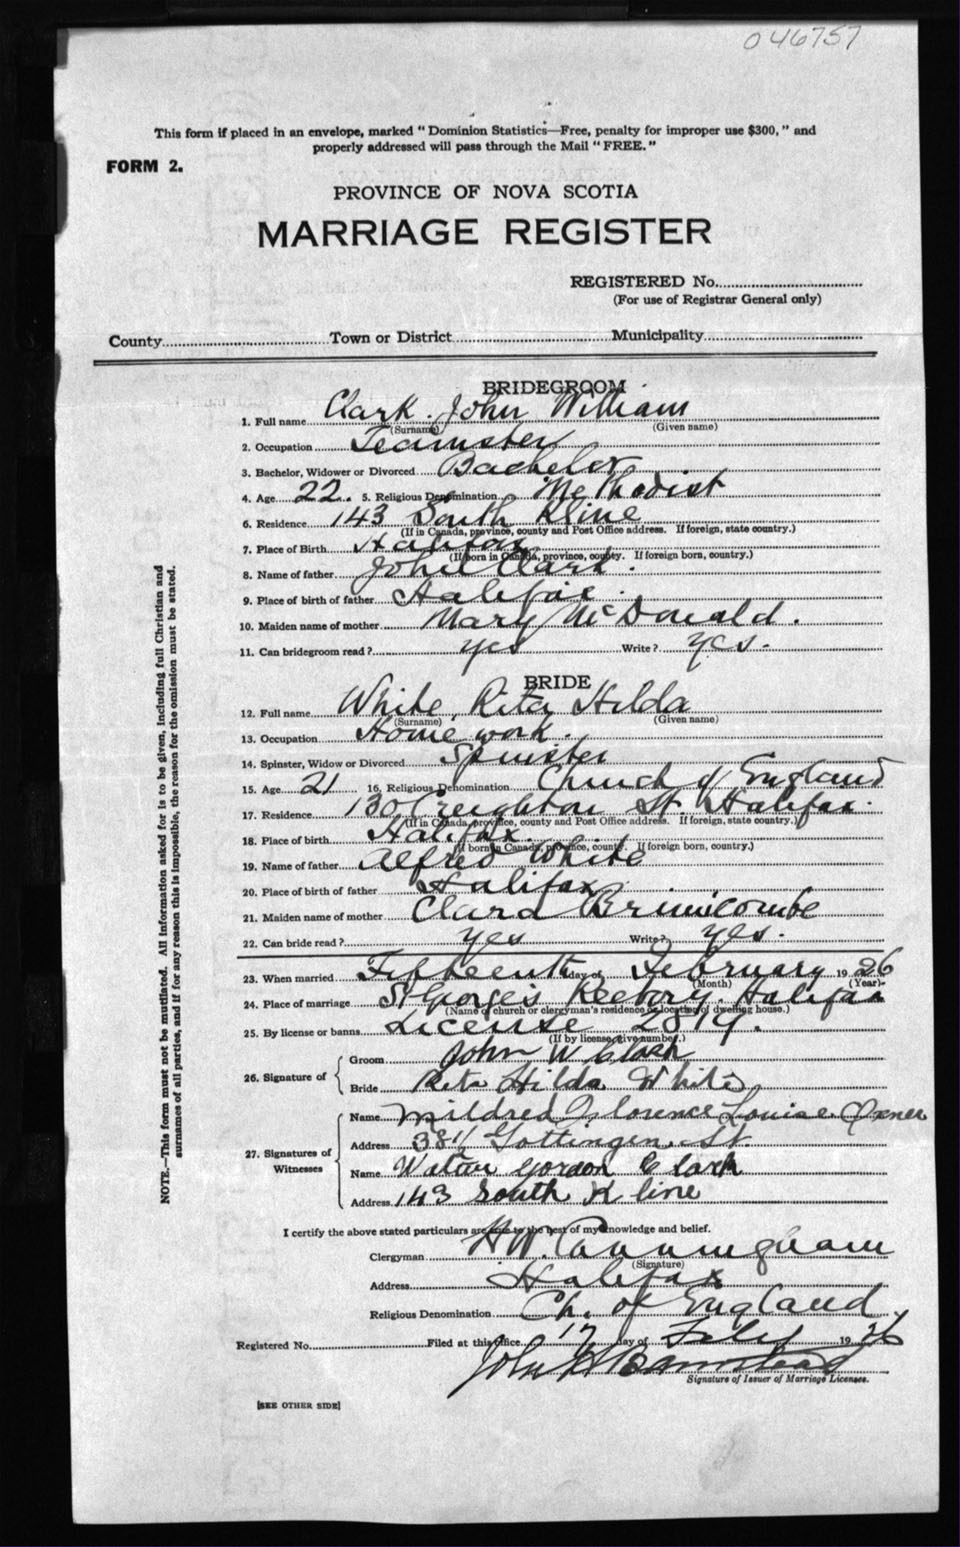 046757
This form if placed in an envelope, marked "Dominion Statistics—Free, penalty for improper use $300," and
properly addressed will pass through the Mail "FREE."
FORM 2.
PROVINCE OF NOVA SCOTIA
MARRIAGE REGISTER
REGISTERED No.
(For use of Registrar General only)
County Town or District Municipality
BRIDEGROOM
1. Full name Clark John William
(Surname) (Given name)
2. Occupation Teamster
3. Bachelor, Widower or Divorced Bachelor
4. Age 22. 5. Religious Denomination Methodist
6. Residence 143 South Kline
(If in Canada, province, county and Post Office address. If foreign, state country.)
7. Place of Birth Halifax
(If born in Canada, province, county. If foreign born, country.)
8. Name of father John Clark.
9. Place of birth of father Halifax.
10. Maiden name of mother Mary McDonald.
11. Can bridegroom read? yes Write? yes.
BRIDE
12. Full name White, Rita Hilda
(Surname) (Given name)
13. Occupation Home work.
14. Spinster, Widow or Divorced Spinster
15. Age 21 16. Religious Denomination Church of England
17. Residence 130 Creighton St. Halifax.
(If in Canada, province, county and Post Office address. If foreign, state country.)
18. Place of birth Halifax.
(If born in Canada, province, county. If foreign born, country.)
19. Name of father Alfred White
20. Place of birth of father Halifax
21. Maiden name of mother Clara Brimicombe
22. Can bride read? yes Write? yes.
23. When married Fifteenth day of February 1926
(Month) (Year)
24. Place of marriage St George's Rectory. Halifax
(Name of church or clergyman's residence or location of dwelling house.)
25. By license or banns License 2819.
(If by license, give number.)
26. Signature of
Groom John W Clark
Bride Rita Hilda White
27. Signatures of Witnesses
Name Mildred Florence Louise Oxner
Address 381½ Gottingen. St.
Name Walter Gordon Clark
Address 143 South Kline
I certify the above stated particulars are true to the best of my knowledge and belief.
Clergyman H W. Cunningham
(Signature)
Address Halifax
Religious Denomination Ch. of England
Registered No. Filed at this office 17 day of Feby 1926
John H Barnstead
Signature of Issuer of Marriage Licenses.
[SEE OTHER SIDE]
NOTE.—This form must not be mutilated. All information asked for is to be given, including full Christian and
surnames of all parties, and if for any reason this is impossible, the reason for the omission must be stated.